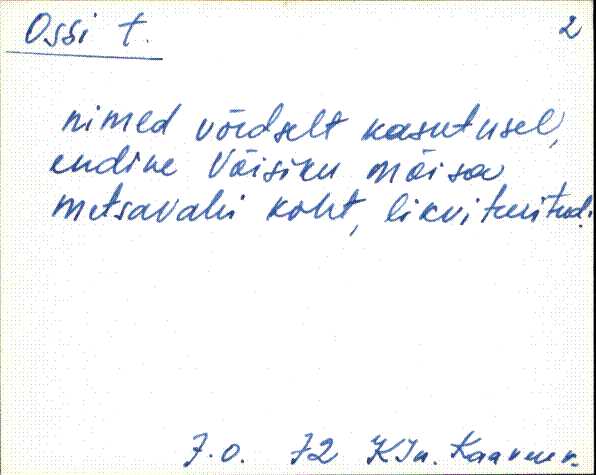 Ossi t. 2
nimed võrdselt kasutusel,
endine Võisiku mõisa
metsavahi koht, likvideeritud.
J.O. 72 KJn. Kaavere.